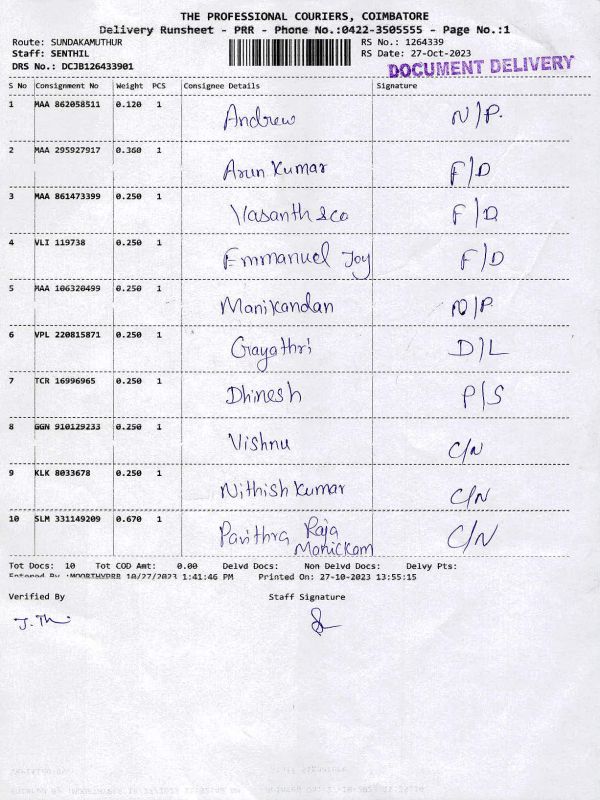 THE PROFESSIONAL COURIERS, COIMBATORE
Delivery Runsheet - PRR - Phone No.:0422-3505555 - Page No.:1
Route: SUNDAKAMUTHUR RS No.: 1264339
Staff: SENTHIL RS Date: 27-Oct-2023
DRS No.: DCJB126433901 DOCUMENT DELIVERY
S No Consignment No Weight PCS Consignee Details Signature
1 MAA 862058511 0.120 1 Andrew N/P.
2 MAA 295927917 0.360 1 Arun Kumar F/D
3 MAA 861473399 0.250 1 Vasanth & co F/D
4 VLI 119738 0.250 1 Emmanuel Joy F/D
5 MAA 106320499 0.250 1 Manikandan N/P.
6 VPL 220815871 0.250 1 Gayathri D/L
7 TCR 16996965 0.250 1 Dhinesh P/S
8 GGN 910129233 0.250 1 Vishnu C/N
9 KLK 8033678 0.250 1 Nithish Kumar C/N
10 SLM 331149209 0.670 1 Pavithra Raja C/N
Manickam
Tot Docs: 10 Tot COD Amt: 0.00 Delvd Docs: Non Delvd Docs: Delvy Pts:
Entered By :MOORTHYPRR 10/27/2023 1:41:46 PM Printed On: 27-10-2023 13:55:15
Verified By Staff Signature